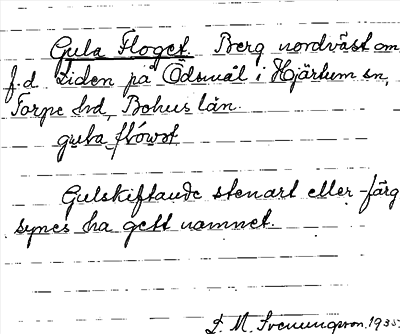 Gula Floget. Berg nordväst om
f.d Liden på Ödsmål i Hjärtum sn,
Torpe hd, Bohus län.
gula flówət
Gulskiftande stenart eller färg
synes ha gett namnet.
D. M. Svenungsson. 1935.